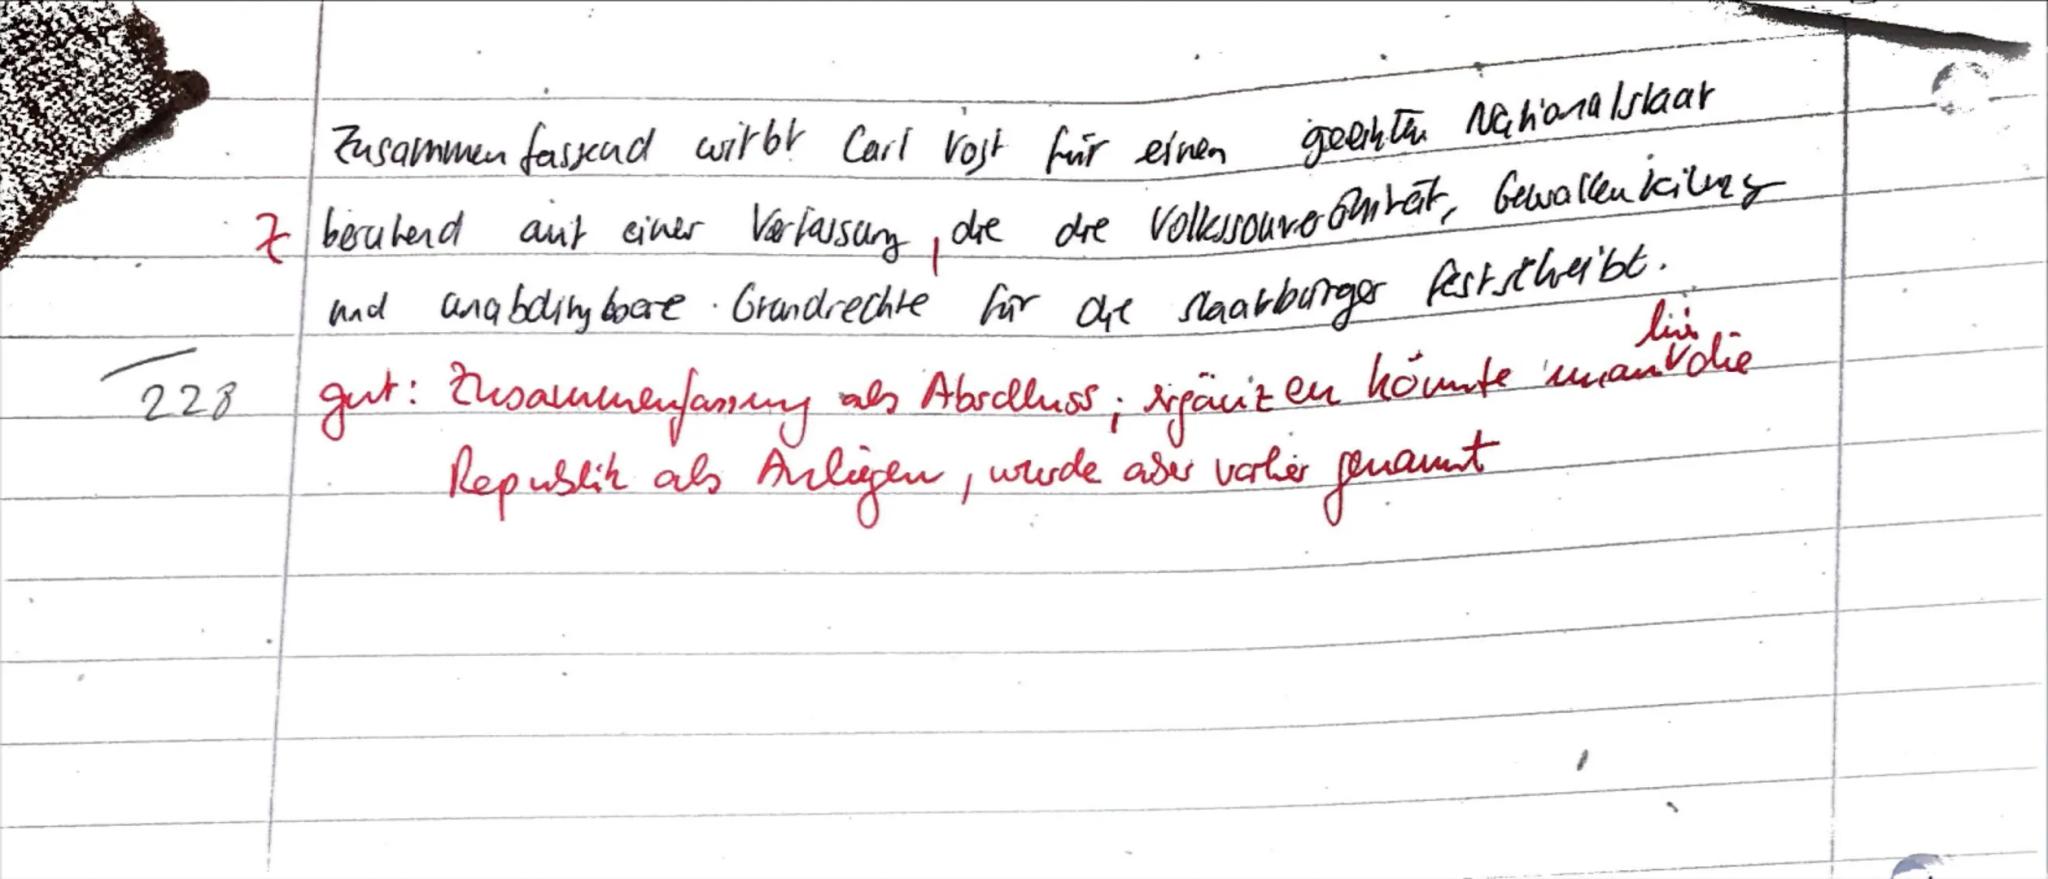 Zusammenfassend wirbt Carl Vogt für einen geeinten Nationalstaat
Z beruhend auf einer Verfassung, die die Volkssouveränität, Gewaltenteilung
und unabdingbare Grundrechte für die Staatbürger festschreibt.
hier
228 gut: Zusammenfassung als Abschluss; ergänzen könnte man die
Republik als Anliegen, wurde aber vorher genannt